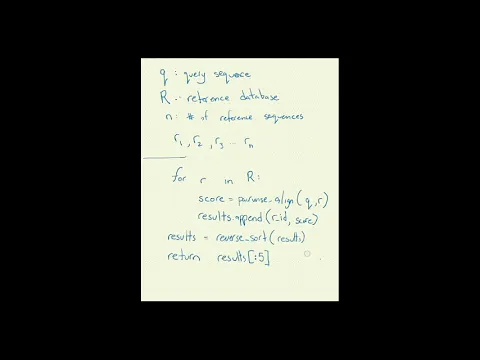 q : query sequence
R : reference database
n : # of reference sequences
r1, r2, r3 ... rn
for r in R:
score = pairwise_align(q,r)
results.append(r_id, score)
results = reverse_sort(results)
return results[:5]